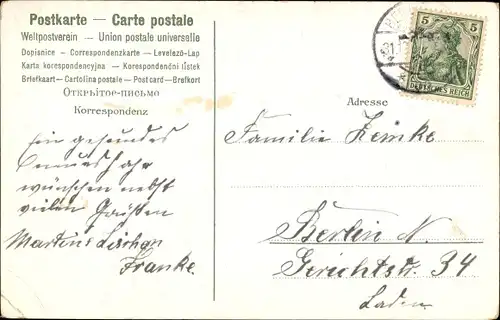 Postkarte — Carte postale
Weltpostverein — Union postale universelle
Dopisnice – Correspondenzkarte – Levelező-Lap
Karta korespondencyjna — Korespondenčni listek
Briefkaart – Cartolina postale – Postcard – Brefkort
Открытое-письмо
Korrespondenz
Ein gesundes
neues Jahr
wünschen nebst
vielen Grüßen
Martins
Franke.
5 5
DEUTSCHES REICH
31.12.
Adresse
Familie Zemke
Berlin N.
Gerichtstr. 34
Laden.